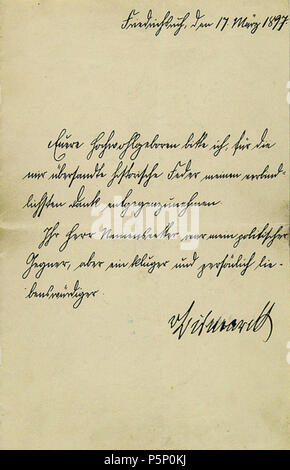 Friedrichsruh, den 17 März 1897.
Euere Hochwohlgeboren bitte ich, für die
mir übersandte historische Feder meinen verbind-
lichsten Dank entgegenzunehmen.
Ihr Herr war mein politischer
Gegner, aber ein kluger und persönlich lie-
benswürdiger.
vBismarck
alamy
Image ID: P5P0KJ
www.alamy.com